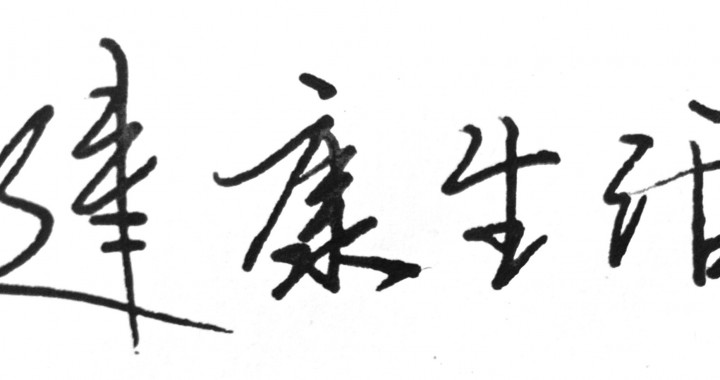 健康生活